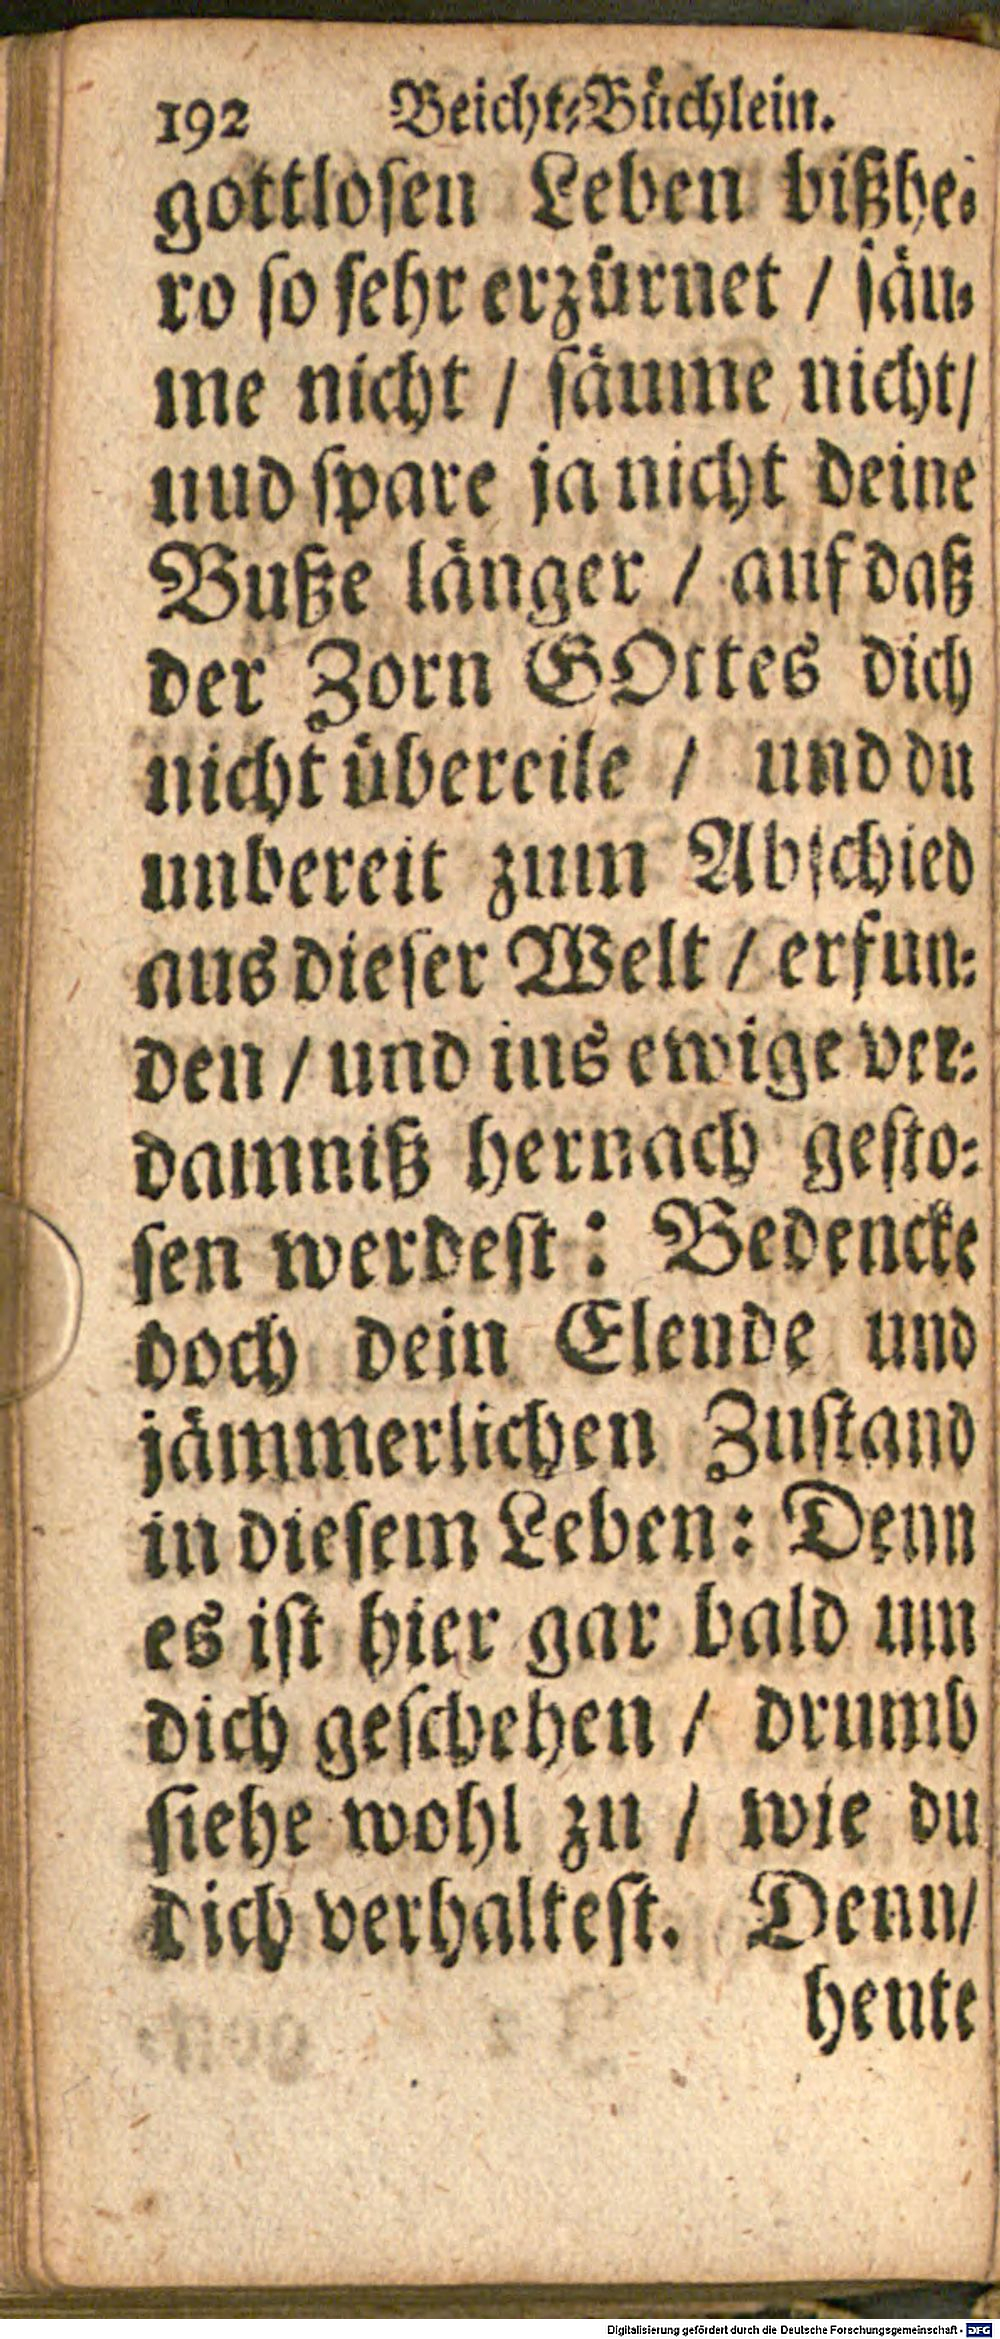 192 Beicht-Büchlein.
gottlosen Leben bißhe-
ro so sehr erzürnet / säu-
me nicht / säume nicht/
und spare ja nicht deine
Buße länger / auf daß
der Zorn GOttes dich
nicht übereile / und du
unbereit zum Abschied
aus dieser Welt / erfun-
den / und ins ewige ver-
damniß hernach gesto-
sen werdest: Bedencke
doch dein Elende und
jämmerlichen Zustand
in diesem Leben: Denn
es ist hier gar bald um
dich geschehen / drumb
siehe wohl zu / wie du
dich verhaltest. Denn/
heute
Digitalisierung gefördert durch die Deutsche Forschungsgemeinschaft - DFG